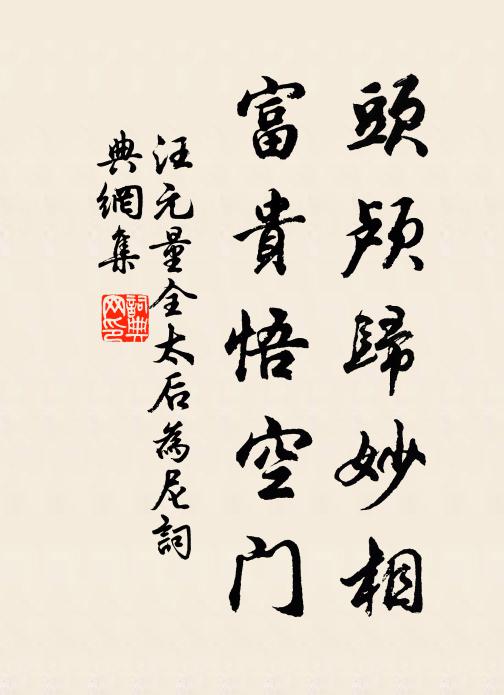 頭顱歸妙相
富貴悟空門
汪元量全太后為尼詞
典網集
詞典網印